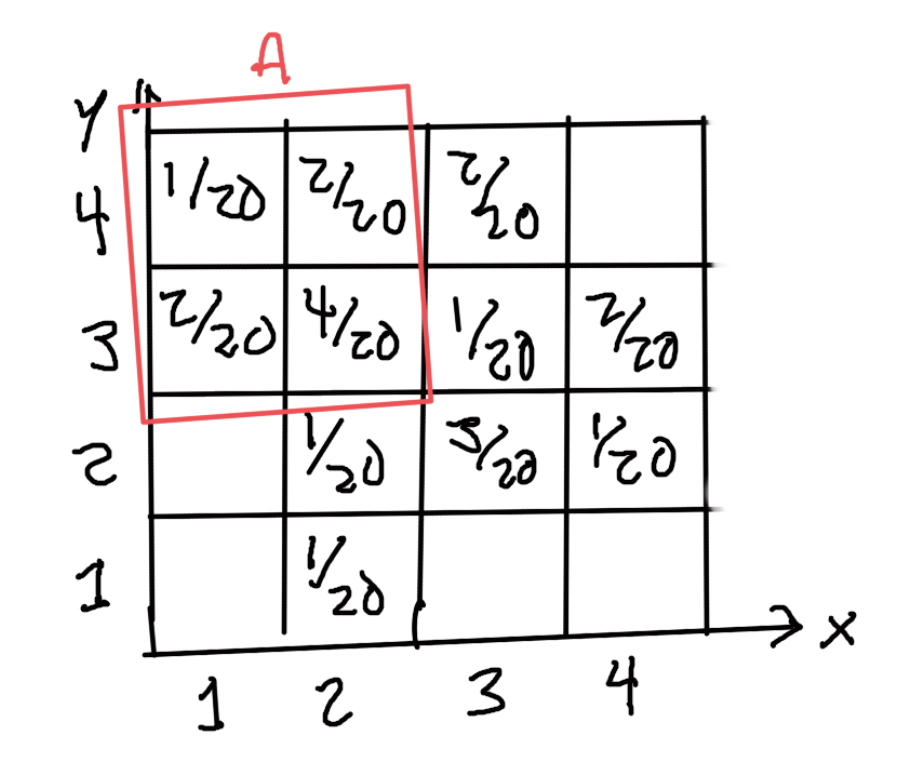 A
Y
4 1/20 2/20 2/20
3 2/20 4/20 1/20 2/20
2 1/20 3/20 1/20
1 1/20
x
1 2 3 4